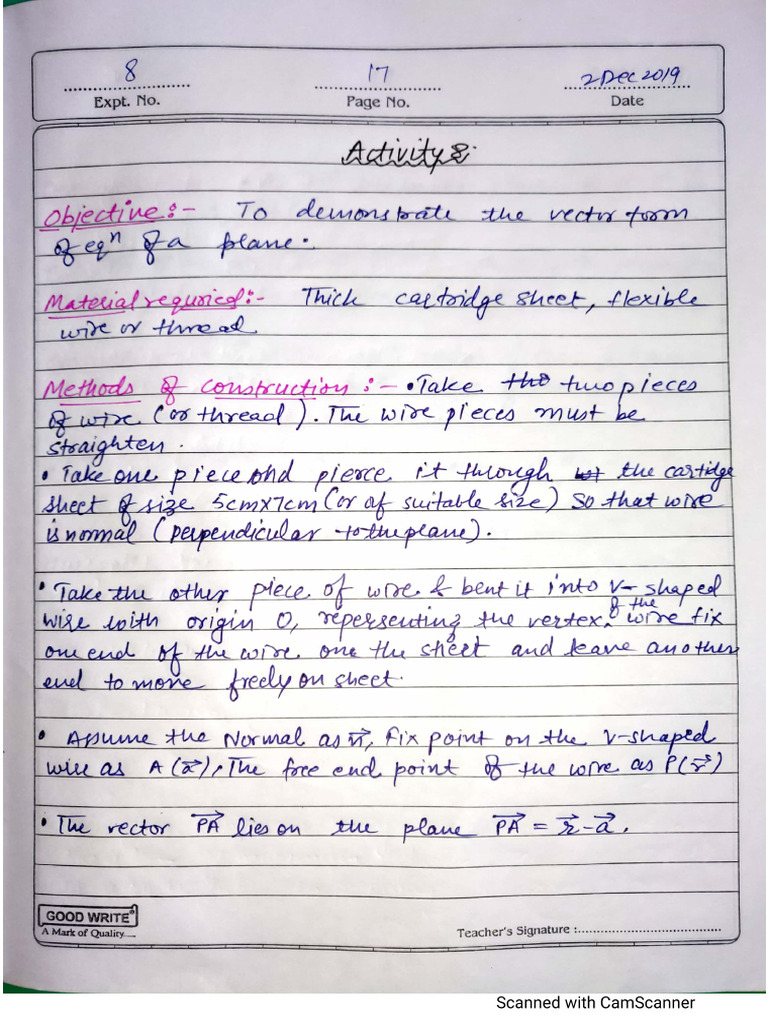 8 17 2 Dec 2019
Expt. No. Page No. Date
Activity 8:
Objective:- To demonstrate the vector form
of eqn of a plane.
Material requried:- Thick cartridge sheet, flexible
wire or thread
Methods of construction:- • Take tho two pieces
of wire (or thread). The wire pieces must be
straighten.
• Take one piece and pierce it through the cartidge
sheet of size 5cmx7cm (or of suitable size) so that wire
is normal (perpendicular to the plane).
• Take the other piece of wire & bent it into V-shaped
wire with origin O, repersenting the vertex of the wire fix
one end of the wire one the sheet and leave another
end to move freely on sheet.
• Assume the Normal as n⃗, fix point on the V-shaped
wire as A(a⃗), The free end point of the wire as P(r⃗)
• The vector PA⃗ lies on the plane PA⃗ = r⃗-a⃗.
GOOD WRITE
A Mark of Quality....
Teacher's Signature :
Scanned with CamScanner